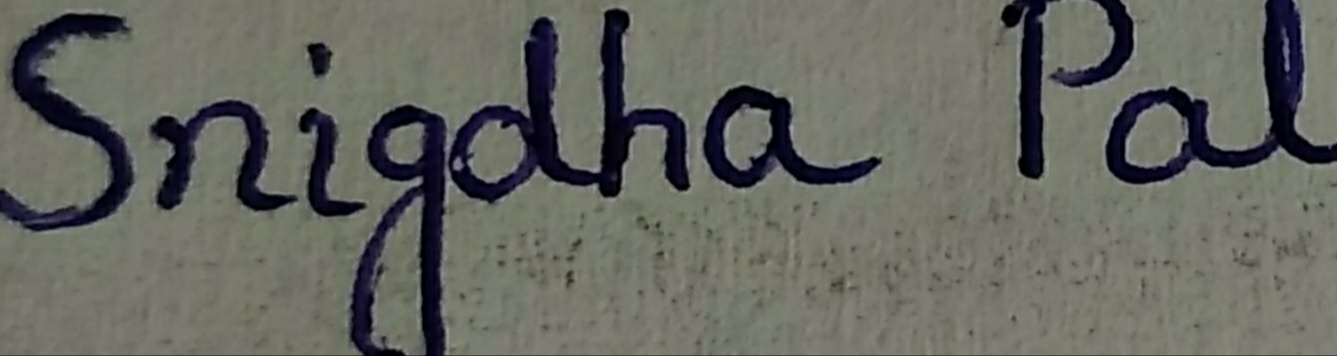 Snigdha Pal